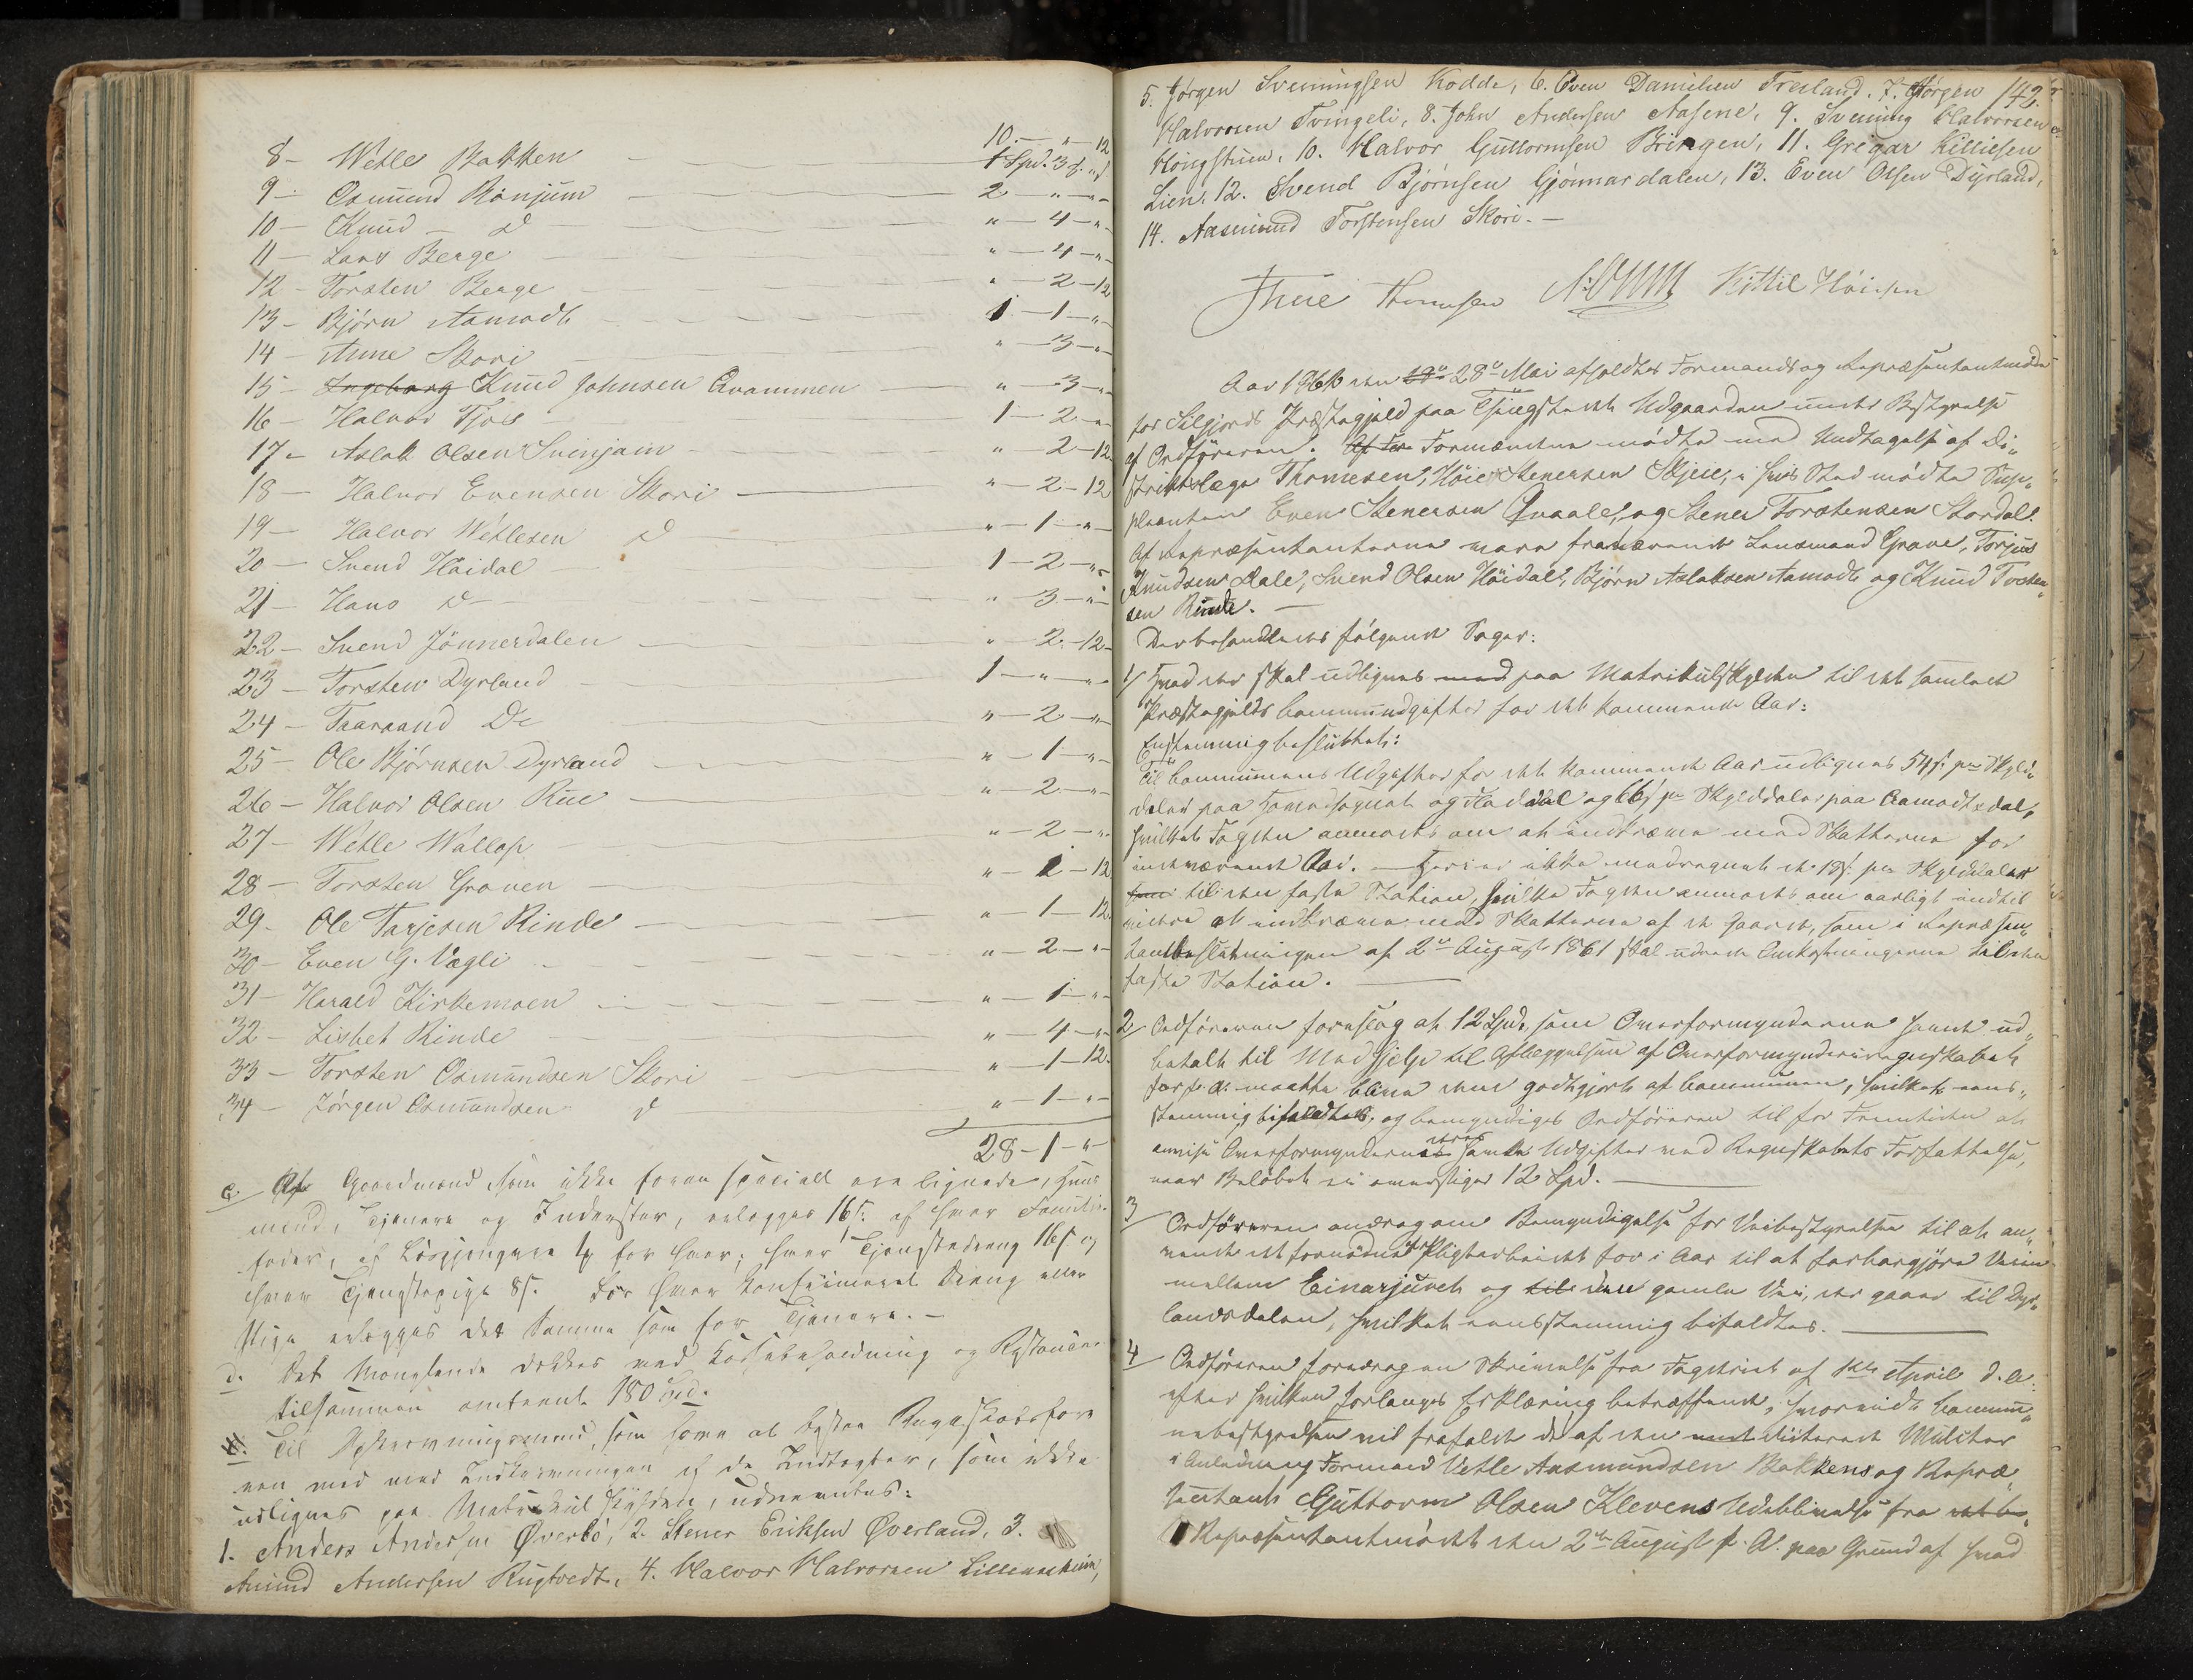 10. - " - 12
8 - Wetle Bakken 1 Spd. 3 ß. "
9 - Osmund Rønjum 2 - " - "
10 - Knud - d " - 4 - "
11 - Lars Berge " - 4 - "
12 - Torsten Berge " - 2 - 12
13 - Bjørn Aamodt 1 - 1 - "
14 - Anne Skori " - 3 - "
15 - Ingeborg Knud Johnsen Qvammen " - 3 - "
16 - Halvor Tjøs 1 - 2 - "
17 - Aslak Olsen Svinjam " - 2 - 12
18 - Halvor Evensen Skori " - 2 - 12
19 - Halvor Wetlesen d " - 1 - "
20 - Svend Høidal 1 - 2 - "
21 - Hans d " - 3 - "
22 - Svend Jønnerdalen " - 2 - 12
23 - Torsten Dyrland 1 - " - "
24 - Taaraand Do " - 2 - "
25 - Ole Bjørnsen Dyrland " - 1 - "
26 - Halvor Olsen Rue " - 2 - "
27 - Wetle Wallop " - 2 - "
28 - Torsten Groven " - 1 - 12
29 - Ole Tarjesen Rinde " - 1 - 12
30 - Even G. Vægli " - 2 - "
31 - Harald Kirkemoen " - 1 - "
32 - Lisbet Rinde " - 4 - "
33 - Torsten Osmundsen Skori " - 1 - 12
34 - Jørgen Osmundsen d " - 1 - "
28 - 1 - "
c. Af Gaardmænd som ikke foran specielt ere lignede, Huus
mænd, Tjenere og Inderster, erlægges 16 ß. af hver Familie
fader, af Løsgjengere for hver; hver Tjenestedreng 16 ß og
hver Tjenestepige 8 ß. For hver konfirmeret Dreng eller
Pige erlægges det Samme som for Tjenere. -
d. Det Manglende dækkes ved Kassebeholdning og Restancer
tilsammen omtrent 180 Spd.
Til Opkrævningsmænd, som have at bistaa Regnskabsføre
ren med med Indkrævningen af de Indtægter, som ikke
udlignes paa Matrikulskylden, udnævntes:
1. Anders Andersen Øverbø, 2. Stener Eriksen Øverland, 3.
Amund Andersen Rugtvedt, 4. Halvor Halvorsen Lillenscheim,
142.
5. Jørgen Sveinungsen Kodde, 6. Even Danielsen Tresland, 7. Jørgen
Halvorsen Tvingeli, 8. John Andersen Aasene, 9. Sveinung Halvorsen
Høingstuen, 10. Halvor Guttormsen Bringen, 11. Gregar Killiesen
Lien, 12. Svend Bjørnsen Gjønnardalen, 13. Even Olsen Dyrland,
14. Aasmund Torstensen Skori. -
Thue Thomesen Kittil Høiesen
Aar 1862 den 28de Mai afholdtes Formands og Repræsentantmøde
for Silgjords Præstegjeld paa Thingstedet Udgaarden under Bestyrelse
af Ordføreren. Af Formændene mødte med Undtagelse af Di-
striktslæge Thomesen, Høie Stenersen Skjeie, i hvis Sted mødte Sup-
pleanten Even Stenersen Qvaale, og Stener Torstensen Stordal.
Af Repræsentanterne vare fraværende Lensmand Grave, Torjus
Knudsen Dale, Svend Olsen Høidal, Bjørn Aslaksen Aamodt og Knud Torsten-
sen Rinde. -
Der behandledes følgende Sager:
1/ Hvad der skal udlignes med paa Matrikulskylden til det samlede
Præstegjelds Communeudgifter for det kommende Aar:
Enstemmig besluttet:
Til Communens Udgifter for det kommende Aar udlignes 54 ß. pr Skyld-
daler paa Hovedsognet og Fladdal og 66 ß pr Skylddaler paa Aamodtsdal,
hvilket Fogden anmodes om at indkræve med Skatterne for
indeværende Aar. - Heri er ikke medregnet de 13 ß. pr Skylddaler
til den faste Station, hvilke Fogden anmodes om aarligt indtil
videre at indkræve med Skatterne af de Gaarde, som i Repræsen-
tantbeslutningen af 2den August 1861 skal udrede Omkostningerne til den
faste Station.
2/ Ordføreren foreslog at 12 Spd., som Overformynderne havde ud-
betalt til Medhjelp til Aflæggelsen af Overformynderiregnskabet
for f. A. maatte blive dem godtgjort af Communen, hvilket eens-
stemmig bifaldtes, og bemyndiges Ordføreren til for Fremtiden at
anvise Overformynderne deres havte Udgifter ved Regnskabets Forfattelse,
naar Beløbet ei overstiger 12 Spd.
3/ Ordføreren androg om Bemyndigelse for Veibestyrelsen til at an-
vende det fornødne Pligtarbeide for i Aar til at farbargjøre Veien
mellem Einarjuvet og til den gamle Vei, der gaaer til Dyr-
landsdalen, hvilket eensstemmig bifaldtes.
4/ Ordføreren foredrog en Skrivelse fra Fogderiet af 1ste April d. A.
efter hvilken forlanges Erklæring betræffende, hvorvidt Commu-
nebestyrelsen vil frafalde de af den dicterede Mulcter
i Anledning Formand Vetle Aasmundsen Bakkens og Repræ-
sentant Guttorm Olsen Klevens Udeblivelse fra
Repræsentantmødet den 2den August f. A. paa Grund af hvad